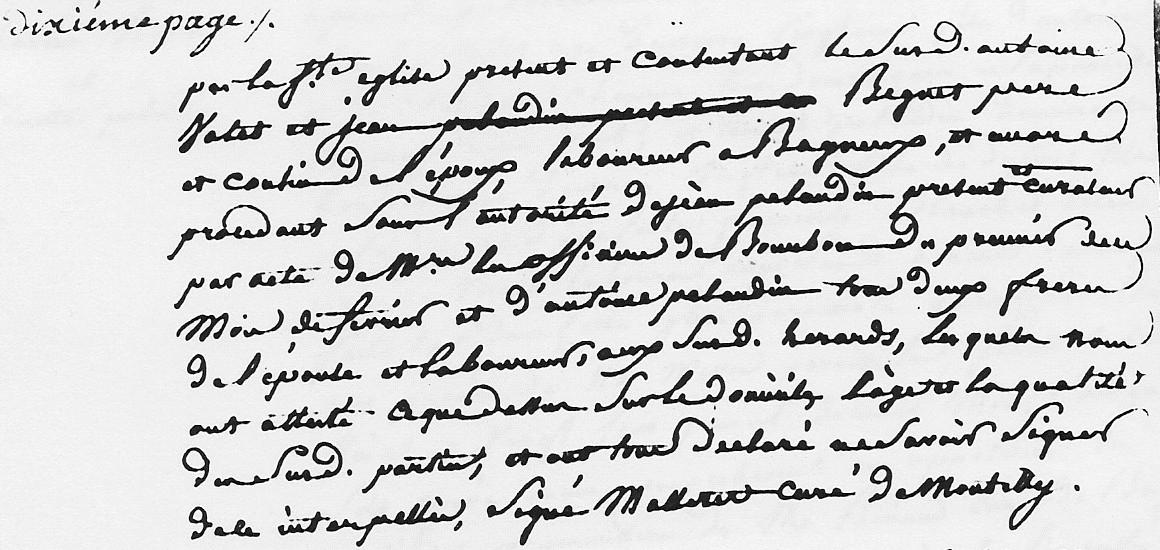 dixiéme page ./.
par la Ste eglise present et consentant le Surd. antoine
Valet et jean pelaudin present et Beguet frere
et cousin de l'époux laboureurs a Bagneux, et encore
procedant Sous l'autorité de jean pelaudin present et curateur
par acte de Mrs les officiers de Bourbon du premier de ce
Mois de fevrier et d'antoine pelaudin tous deux freres
de l'épouse et laboureurs, aux Surd. herards, lesquels nous
ont attesté ce que dessus Sur le domicile, l'age et la qualité
des Surd. parties, et ont tous declaré ne Savoir Signer
de ce interpellés, Signé Malleret curé de Montilly .